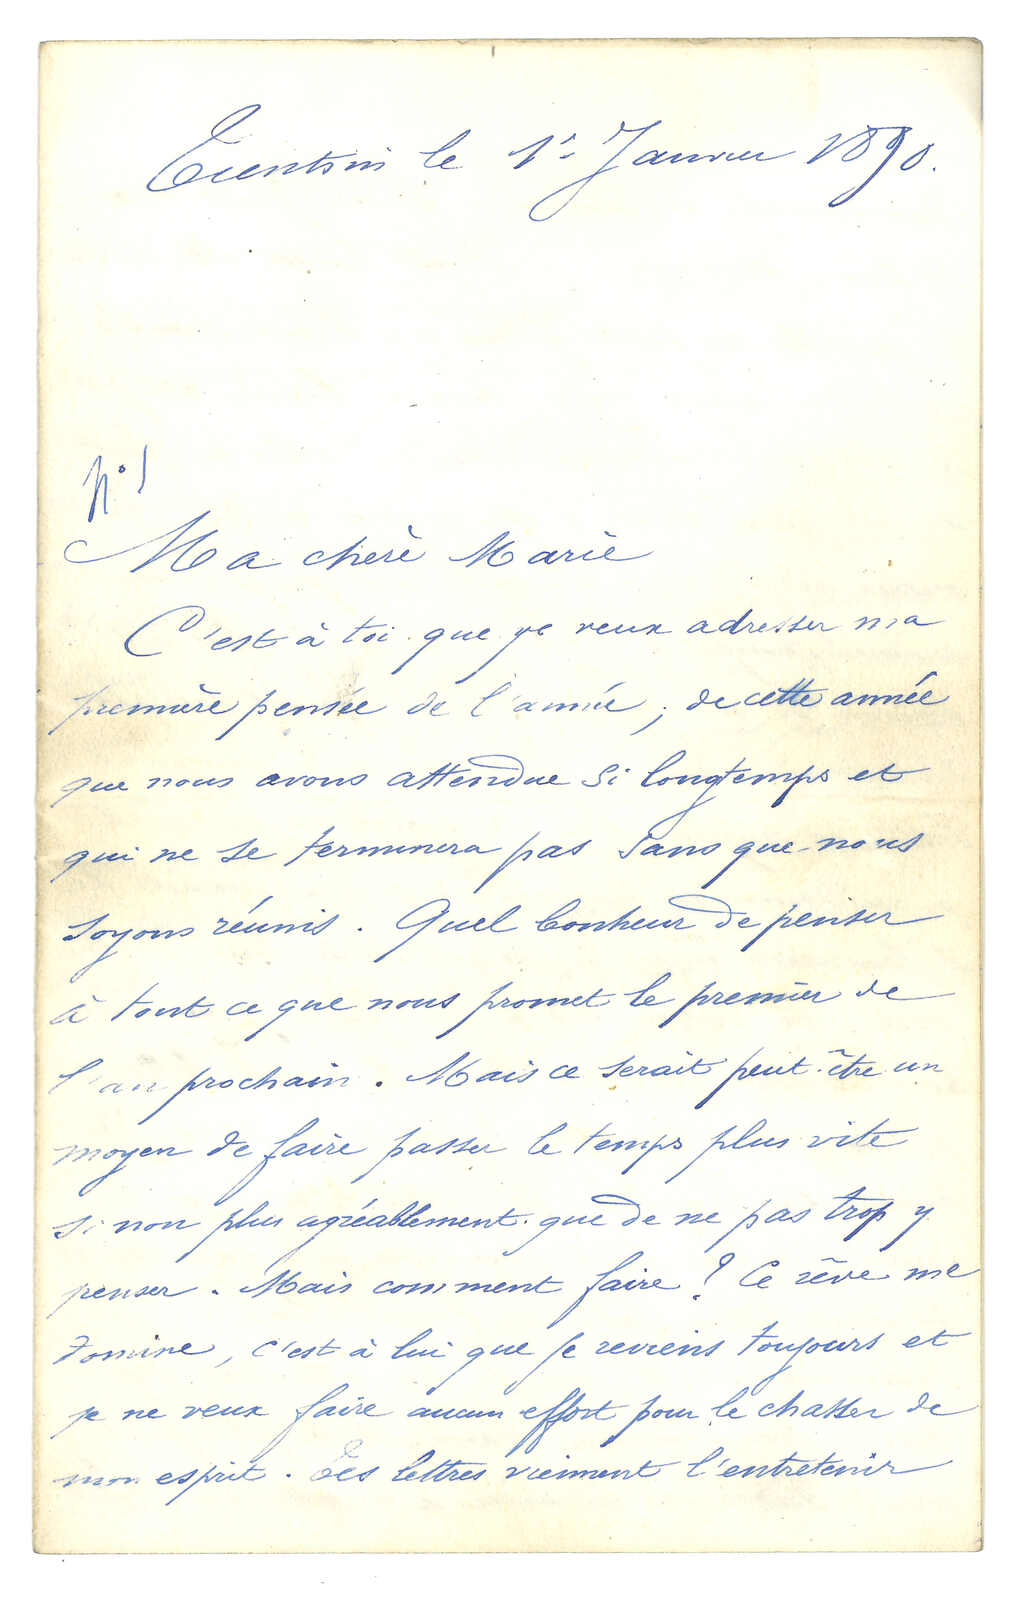 Tientsin le 1r Janvier 1890.
No 1
Ma chère Marie
C'est à toi que je veux adresser ma
première pensée de l'année, de cette année
que nous avons attendue si longtemps et
qui ne se terminera pas sans que nous
soyons réunis. Quel bonheur de penser
à tout ce que nous promet le premier de
l'an prochain. Mais ce serait peut-être un
moyen de faire passer le temps plus vite
si non plus agréablement que de ne pas trop y
penser. Mais comment faire? Ce rêve me
domine, c'est à lui que je reviens toujours et
je ne veux faire aucun effort pour le chasser de
mon esprit. Tes lettres viennent l'entretenir